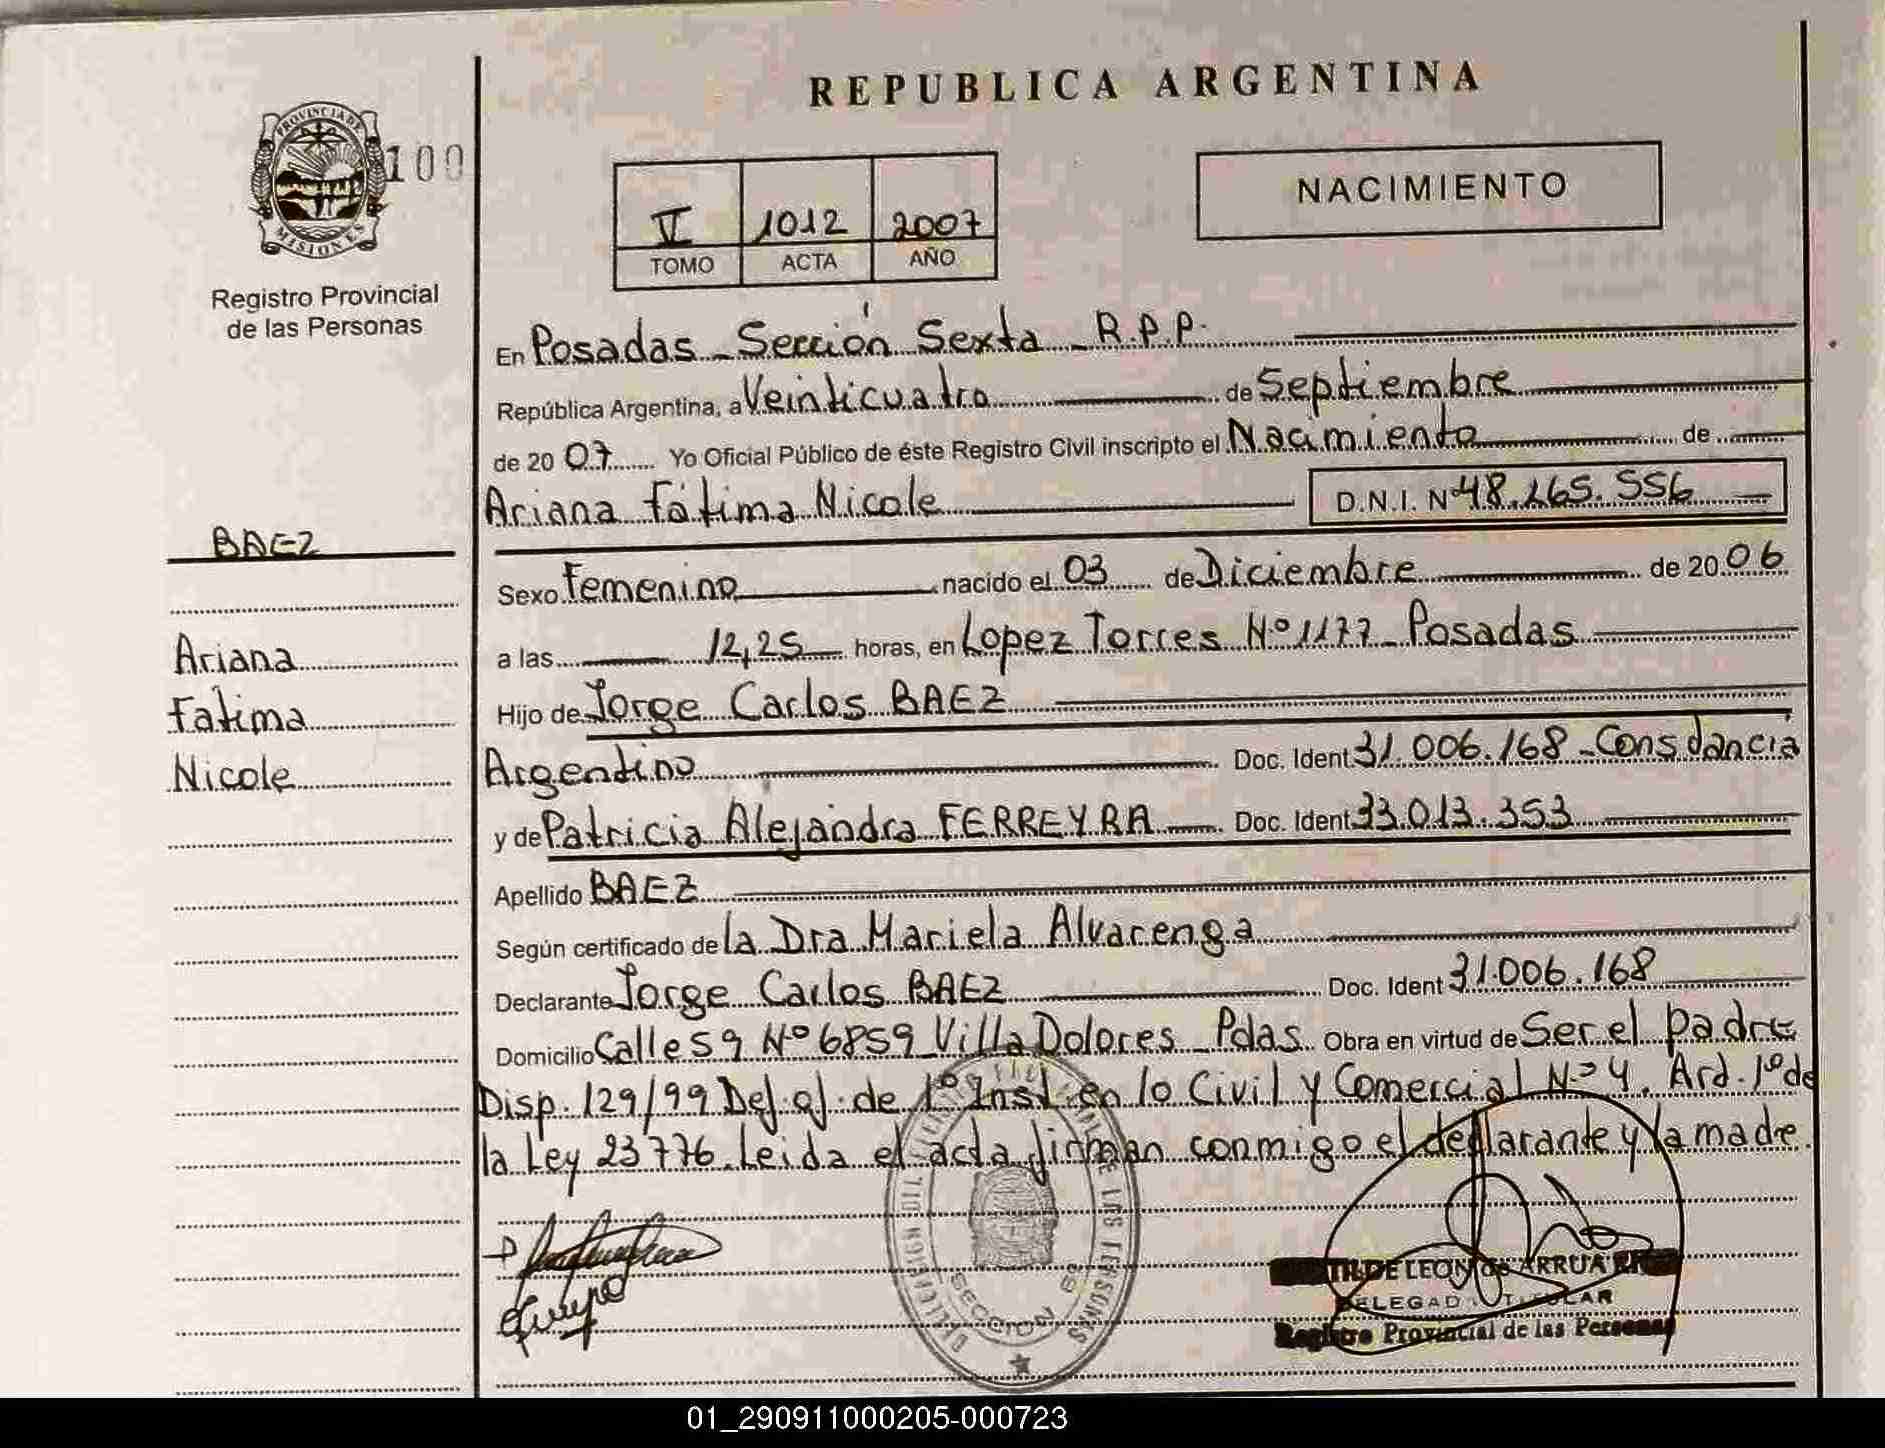 REPUBLICA ARGENTINA
PROVINCIA DE MISIONES
100
V 1012 2007
TOMO ACTA AÑO
NACIMIENTO
Registro Provincial
de las Personas
En Posadas - Sección Sexta - R.P.P.
República Argentina, a Veinticuatro de Septiembre
de 2007 Yo Oficial Público de éste Registro Civil inscripto el Nacimiento de
Ariana Fátima Nicole D.N.I. Nº 48.265.556
BAEZ
Sexo Femenino nacido el 03 de Diciembre de 2006
Ariana
a las 12,25 horas, en Lopez Torres Nº 1177 - Posadas
Fatima
Hijo de Jorge Carlos BAEZ
Nicole
Argentino Doc. Ident 31.006.168 - Constancia
y de Patricia Alejandra FERREYRA Doc. Ident 33.013.353
Apellido BAEZ
Según certificado de la Dra Mariela Alvarenga
Declarante Jorge Carlos BAEZ Doc. Ident 31.006.168
Domicilio Calle 59 Nº 6859 Villa Dolores - Pdas. Obra en virtud de Ser el padre
Disp. 129/99 Def. of. de 1º Inst. en lo Civil y Comercial Nº 4. Art. 1º de
la Ley 23776. Leida el acta firman conmigo el declarante y la madre.
SECCION
LEON de ARRUA
DELEGADA TITULAR
Registro Provincial de las Personas
01_290911000205-000723